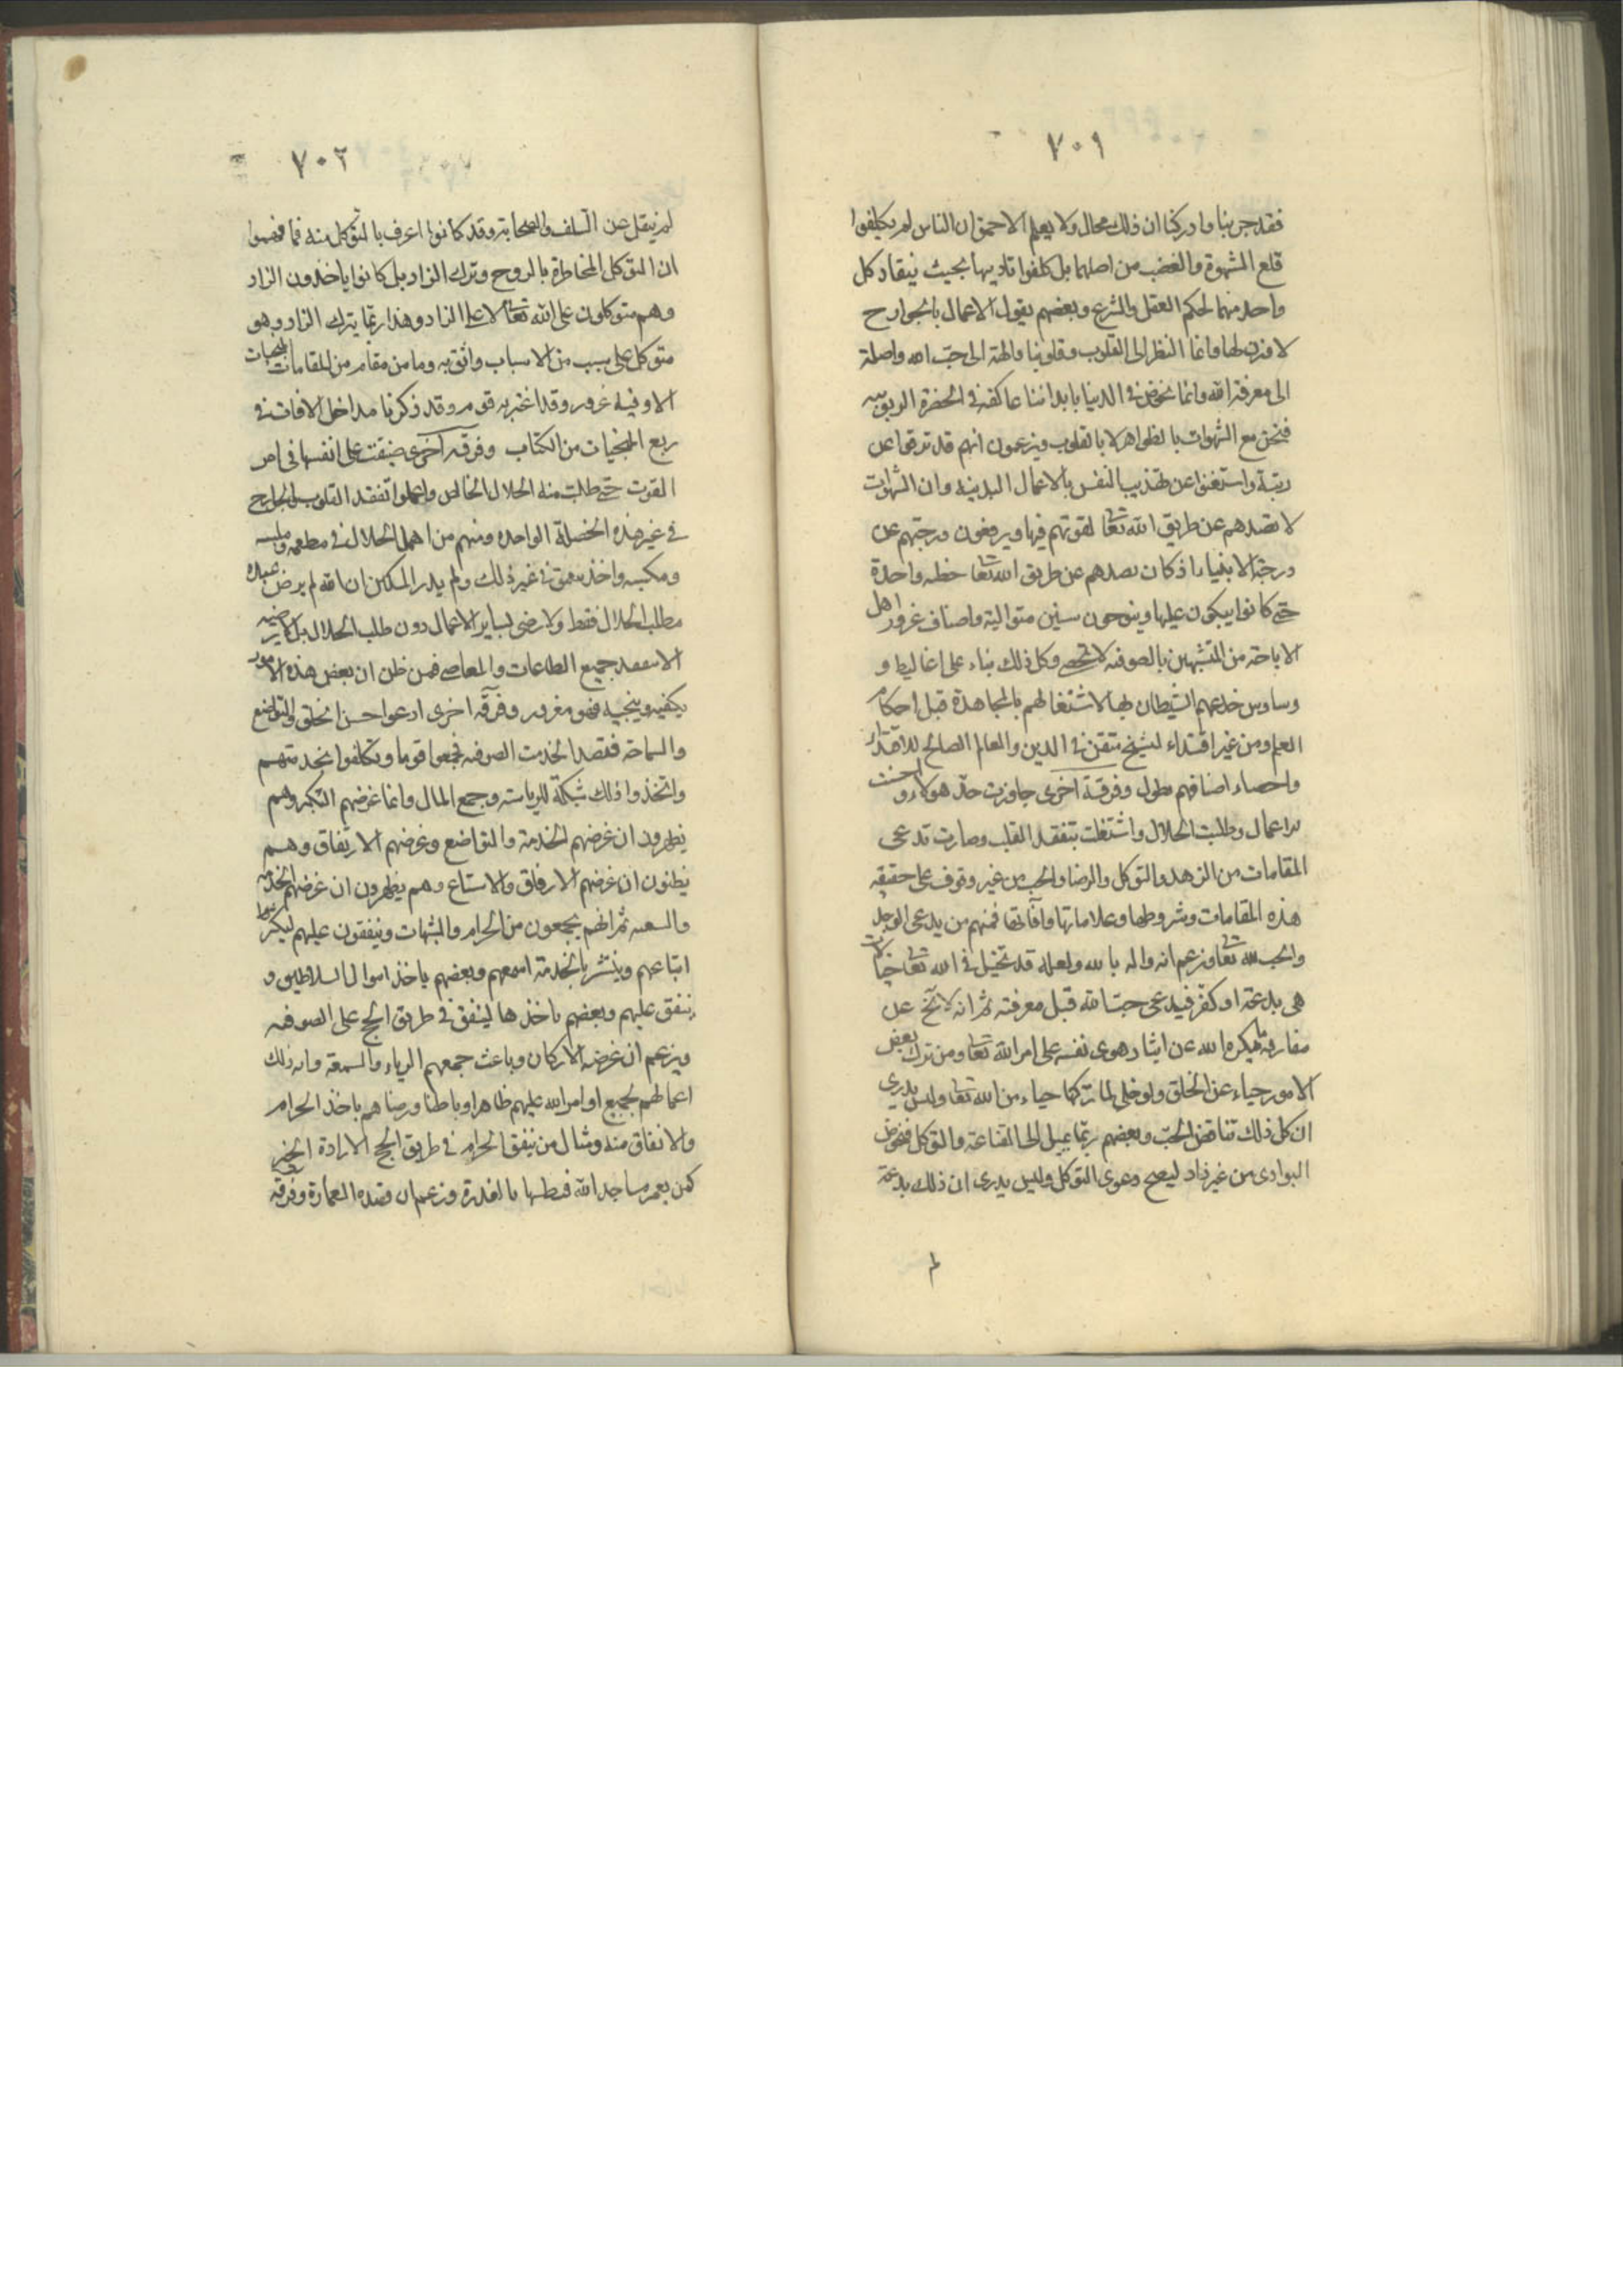 ٧٠١
فقد جربنا وادركنا ان ذلك محال ولا يعلم الاحمق ان الناس لم يكلفوا
قلع الشهوة والغضب من اصلهما بل كلفوا تاديبها بحيث ينقاد كل
واحد منهما لحكم العقل والشرع وبعضهم يقول الاعمال بالجوارح
لا وزن لها وانما النظر الى القلوب وقلوبنا والهة الى حب الله واصلة
الى معرفة الله وانما نخوض في الدنيا بابداننا عاكفة في الحضرة الربوبيه
فنحن مع الشهوات بالظواهر لا بالقلوب ويزعمون انهم قد ترقوا عن
رتبة واستغنوا عن تهذيب النفس بالاعمال البدنيه وان الشهوات
لا تصدهم عن طريق الله تعا لقوتهم فيها ويرفعون درجتهم عن
درجة الانبياء اذ كان تصدهم عن طريق الله تعا خطيه واحدة
حتى كانوا يبكون عليها وينوحون سنين متوالية واصناف غرور اهل
الاباحة من المتشبهين بالصوفيه لا تحصى وكل ذلك بناء على اغاليط و
وساوس خدعهم الشيطان بها لاشتغالهم بالمجاهدة قبل احكام
العلم ومن غير اقتداء لشيخ متقن في الدين والعالم الصالح للاقتداء
واحصاء اصنافهم يطول وفرقة اخرى جاوزت حد هولاء و احسنت
الاعمال وطلبت الحلال واشتغلت بتفقد القلب وصارت تدعى
المقامات من الزهد والتوكل والرضا والحب من غير وقوف على حقيقه
هذه المقامات وشروطها وعلاماتها وآفاتها فمنهم من يدعى الوجد
والحب لله تعا ويزعم انه واله بالله ولعله قد تخيل في الله تعا خيالات
هى بدعة او كفر فيدعى حب الله قبل معرفته ثم انه لا يخ عن
مفارقة ما يكره الله عن ايثار هوى نفسه على امر الله تعا ومن ترك بعض
الامور حياء عن الخلق ولو خلى لما تركها حياء من الله تعا وليس يدرى
ان كل ذلك تناقض الحب وبعضهم ربما يميل الى القناعة والتوكل فيخوض
البوادى من غير زاد ليصح دعوى التوكل وليس يدرى ان ذلك بدعة
لم
٧٠٢
لم ينقل عن السلف والصحابة وقد كانوا اعرف بالتوكل منه فما فهموا
ان التوكل المخاطرة بالروح وترك الزاد بل كانوا ياخذون الزاد
وهم متوكلون على الله تعا لا على الزاد وهذا ربما يترك الزاد وهو
متوكل على سبب من الاسباب واثق به وما من مقام من المقامات المنجيات
الا وفيه غرور وقد اغتر به قوم وقد ذكرنا مداخل الافات في
ربع المنجيات من الكتاب وفرقه اخرى ضيقت على انفسها فى امر
القوت حتى طلبت منه الحلال الخالص واهملوا تفقد القلوب والجوارح
في غير هذه الخصلة الواحده ومنهم من اهمل الحلال في مطعمه وملبسه
ومكسبه واخذ يتعمق في غير ذلك ولم يدر المسكين ان الله لم يرض عبده
بطلب الحلال فقط ولا يرضى بساير الاعمال دون طلب الحلال بل لا يرضيه
الا تفقد جميع الطاعات والمعاصى فمن ظن ان بعض هذه الامور
يكفيه وينجيه فهو مغرور وفرقه اخرى ادعوا حسن الخلق والتواضع
والسماحة فقصدوا لخدمت الصوفيه فجمعوا قوما وتكلفوا بخدمتهم
واتخذوا ذلك شبكة للرياسته وجمع المال وانما غرضهم التكبر وهم
يظهرون ان غرضهم الخدمة والتواضع وغرضهم الارتفاق وهم
يظنون ان غرضهم الارفاق والاستتباع وهم يظهرون ان غرضهم الخدمه
والتبعيه ثم انهم يجمعون من الحرام والشبهات وينفقون عليهم ليكثر
اتباعهم وينشر بالخدمة اسمهم وبعضهم ياخذ اموال السلاطين و
ينفق عليهم وبعضهم ياخذها لينفق في طريق الحج على الصوفيه
ويزعم ان غرضه وباعث جميعهم الرياء والسمعة وايه ذلك
اهمالهم لجميع اوامر الله عليهم ظاهرا وباطنا ورضاهم باخذ الحرام
والانفاق منه ومثال من ينفق الحرام في طريق الحج الارادة الخير
كمن يعمر مساجد الله فيطينها بالعذرة ويزعم ان قصده العمارة وفرقه